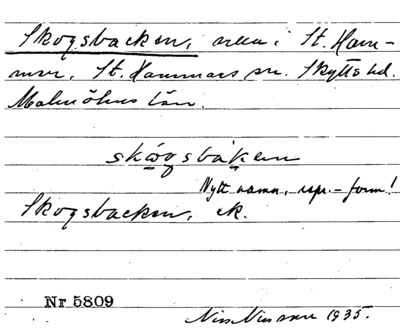 Skogsbacken, area i St. Ham-
mar, St. Hammars sn. Skytts hd.
Malmöhus län.
skǫgsbaken
Nytt namn, rspr.-form!
Skogsbacken, ek.
Nr 5809
Nils Nilsson 1935.